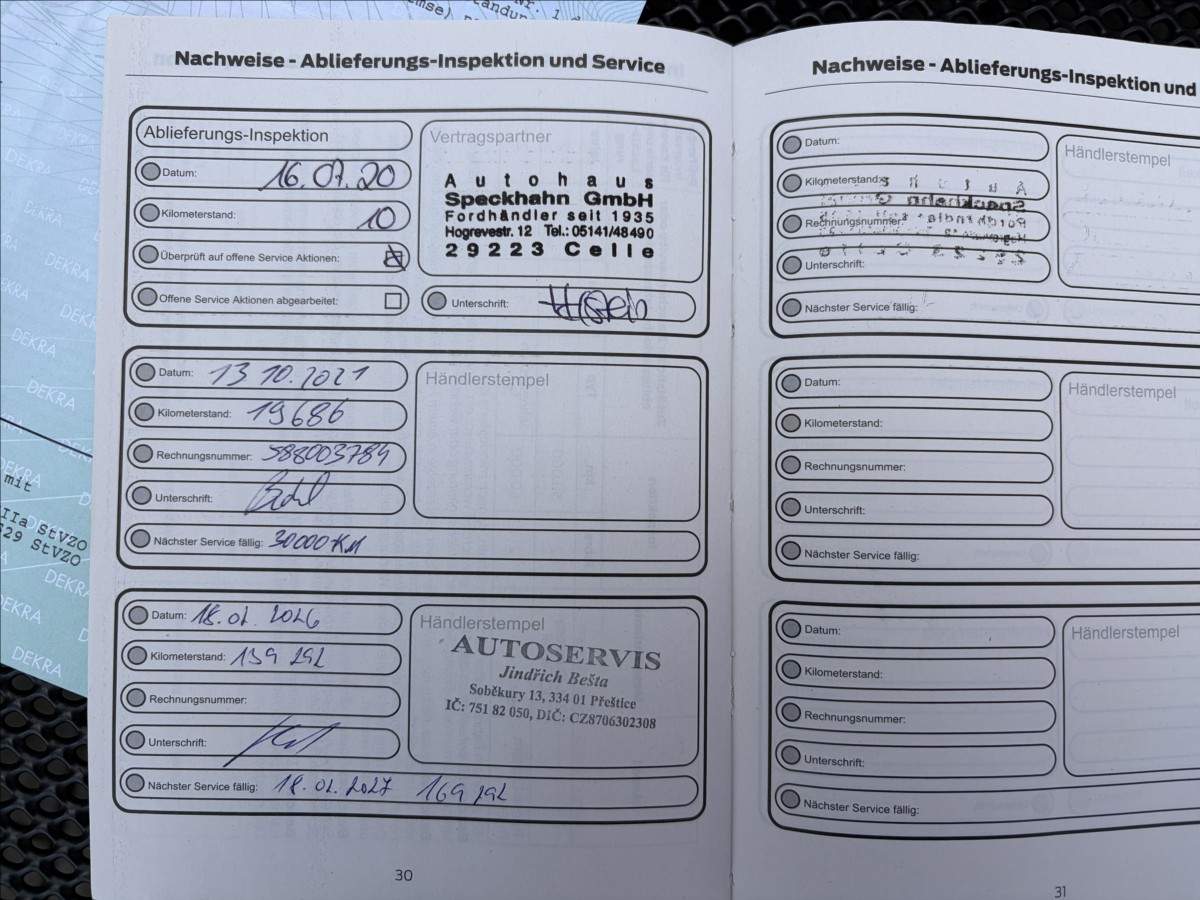 Nachweise - Ablieferungs-Inspektion und Service
Ablieferungs-Inspektion
Datum: 16.07.20
Kilometerstand: 10
Überprüft auf offene Service Aktionen:
Offene Service Aktionen abgearbeitet:
Vertragspartner
Autohaus
Speckhahn GmbH
Fordhändler seit 1935
Hogrevestr. 12 Tel.: 05141/48490
29223 Celle
Unterschrift:
Datum: 13 10.2021
Kilometerstand: 19686
Rechnungsnummer: 588003784
Unterschrift:
Nächster Service fällig: 30000 KM
Händlerstempel
Datum: 18.02.2026
Kilometerstand: 139 292
Rechnungsnummer:
Unterschrift:
Nächster Service fällig: 18.02.2027 169 292
Händlerstempel
AUTOSERVIS
Jindřich Bešta
Soběkury 13, 334 01 Přeštice
IČ: 751 82 050, DIČ: CZ8706302308
30
Nachweise - Ablieferungs-Inspektion und
Datum:
Kilometerstand:
Rechnungsnummer:
Unterschrift:
Nächster Service fällig:
Händlerstempel
Datum:
Kilometerstand:
Rechnungsnummer:
Unterschrift:
Nächster Service fällig:
Händlerstempel
Datum:
Kilometerstand:
Rechnungsnummer:
Unterschrift:
Nächster Service fällig:
Händlerstempel
31
DEKRA
DEKRA
DEKRA
DEKRA
DEKRA
mit
IIa StVZO
629 StVZO
DEKRA
DEKRA
DEKRA